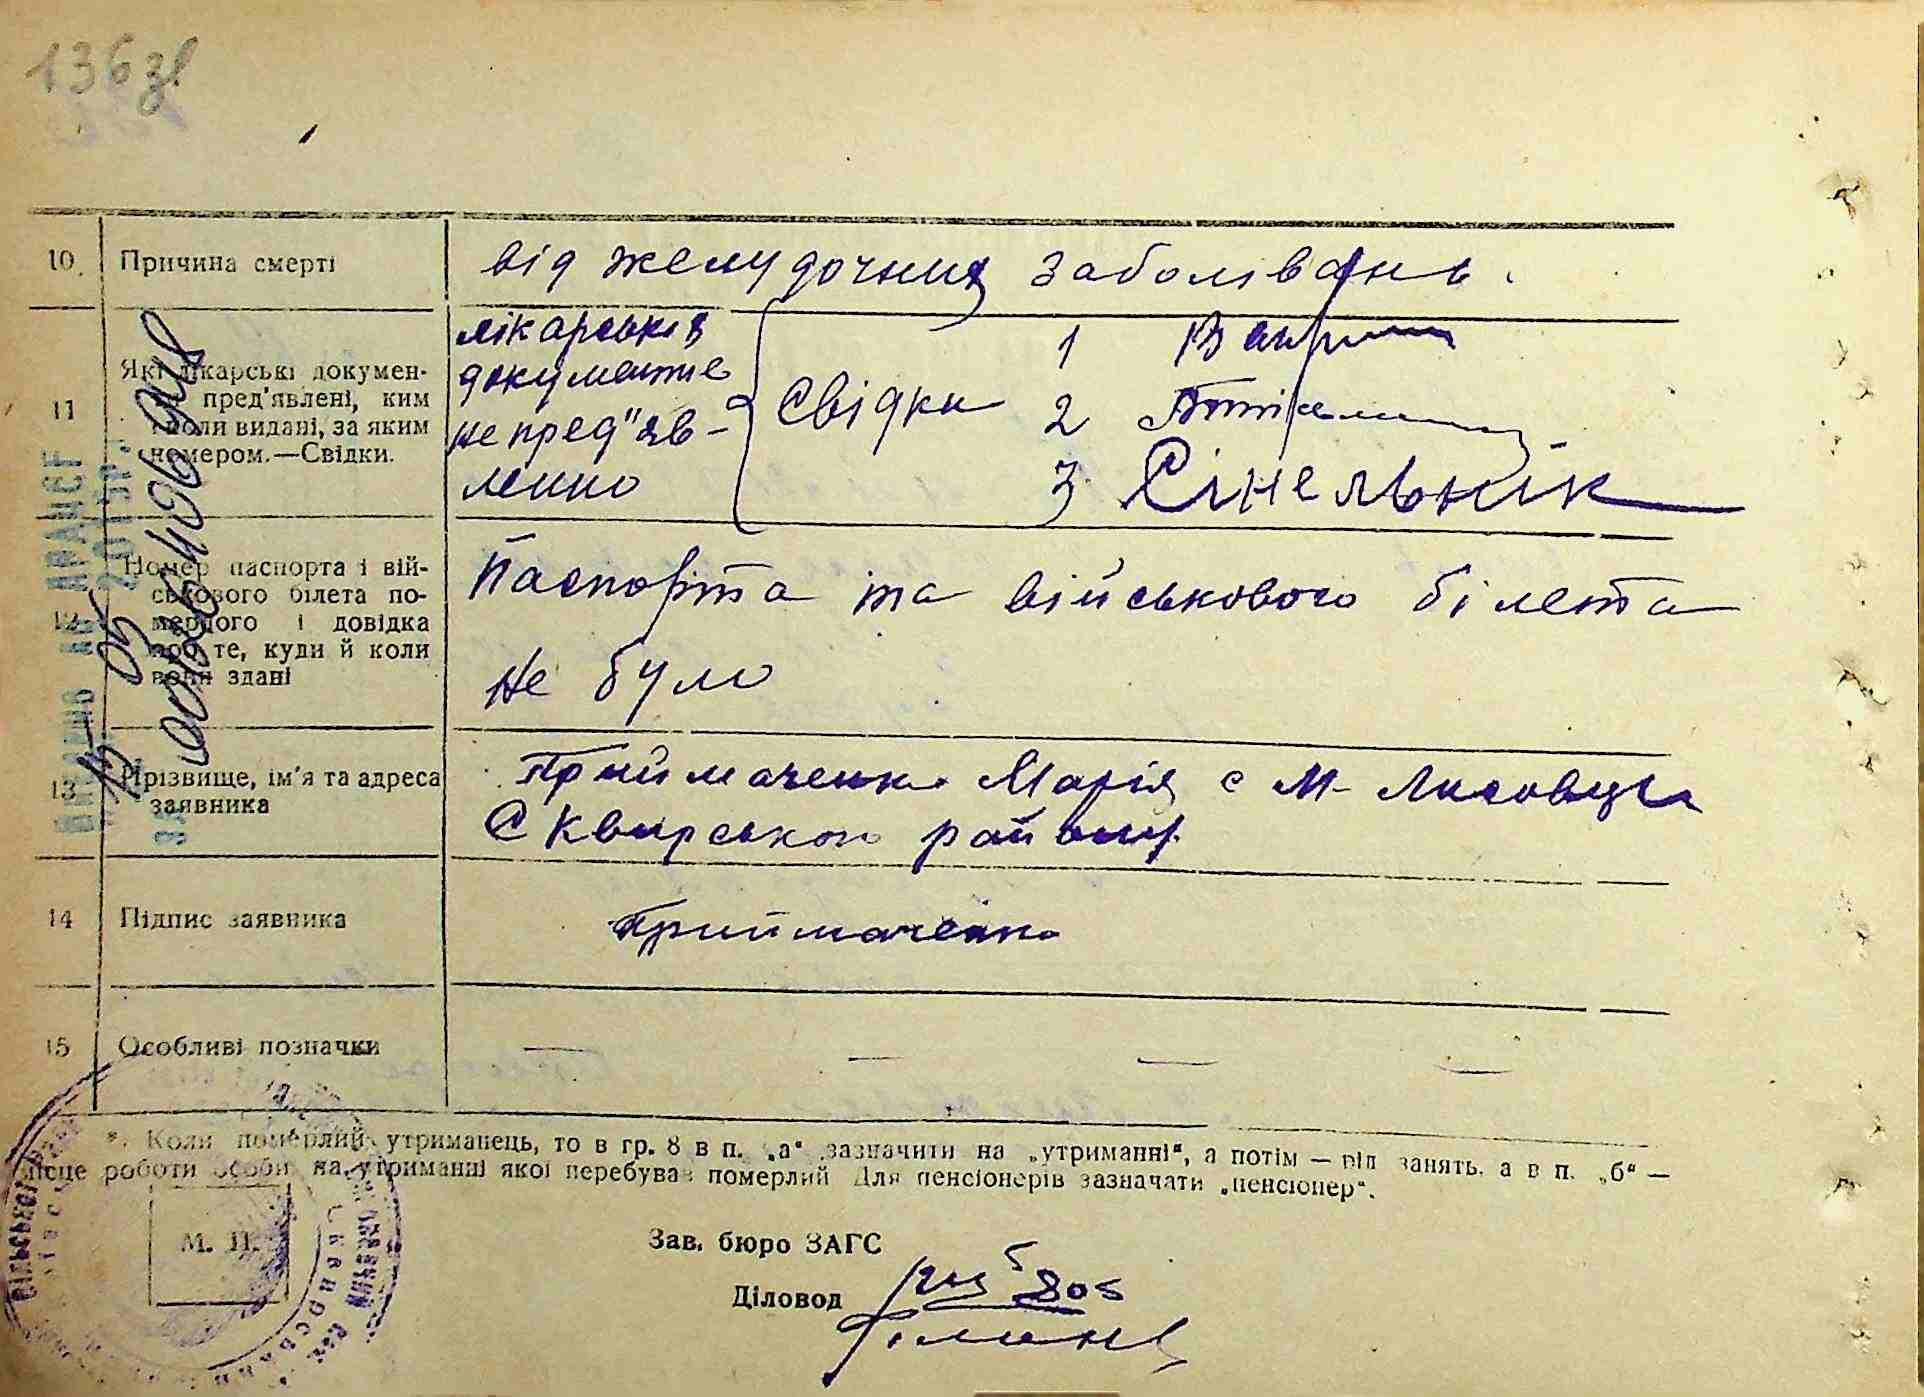 136 зв
10. Причина смерті від желудочних заболівань.
11 Які лікарські докумен-
пред'явлені, ким
і коли видані, за яким
номером.—Свідки.
лікарськів
документів
не пред"яв-
лено
Свідки
1
2
3. Сінельнік
12 Номер паспорта і вій-
ськового білета по-
мерлого і довідка
про те, куди й коли
вони здані
Паспорта та військового білета
не було
13 Прізвище, ім'я та адреса
заявника
Приймаченко Марія с М-Лисовецька
Сквирського району
14 Підпис заявника Приймаченко
15 Особливі позначки — — — —
*. Коли померлий утриманець, то в гр. 8 в п. „а" зазначити на „утриманні", а потім — рід занять, а в п. „б" —
місце роботи особи, на утриманні якої перебував померлий. Для пенсіонерів зазначати „пенсіонер".
М. П.
Зав. бюро ЗАГС
Діловод